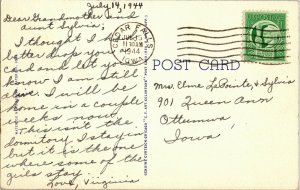 July 14, 1944
Dear Grandmother and
Aunt Sylvia;
I thought I had
better drop you a
card and let you
know I am still
alive. I will be
home in a couple
weeks now.
This isn't the
dormitory I stay in
but it is the one
where some of the
girls stay.
Love, Virginia
CEDAR FALLS
JUL 15
11 30 AM
1944
IOWA
POST CARD
Mrs. Elme LaPointe & Sylvia
901 Queen Ann
Ottumwa
Iowa